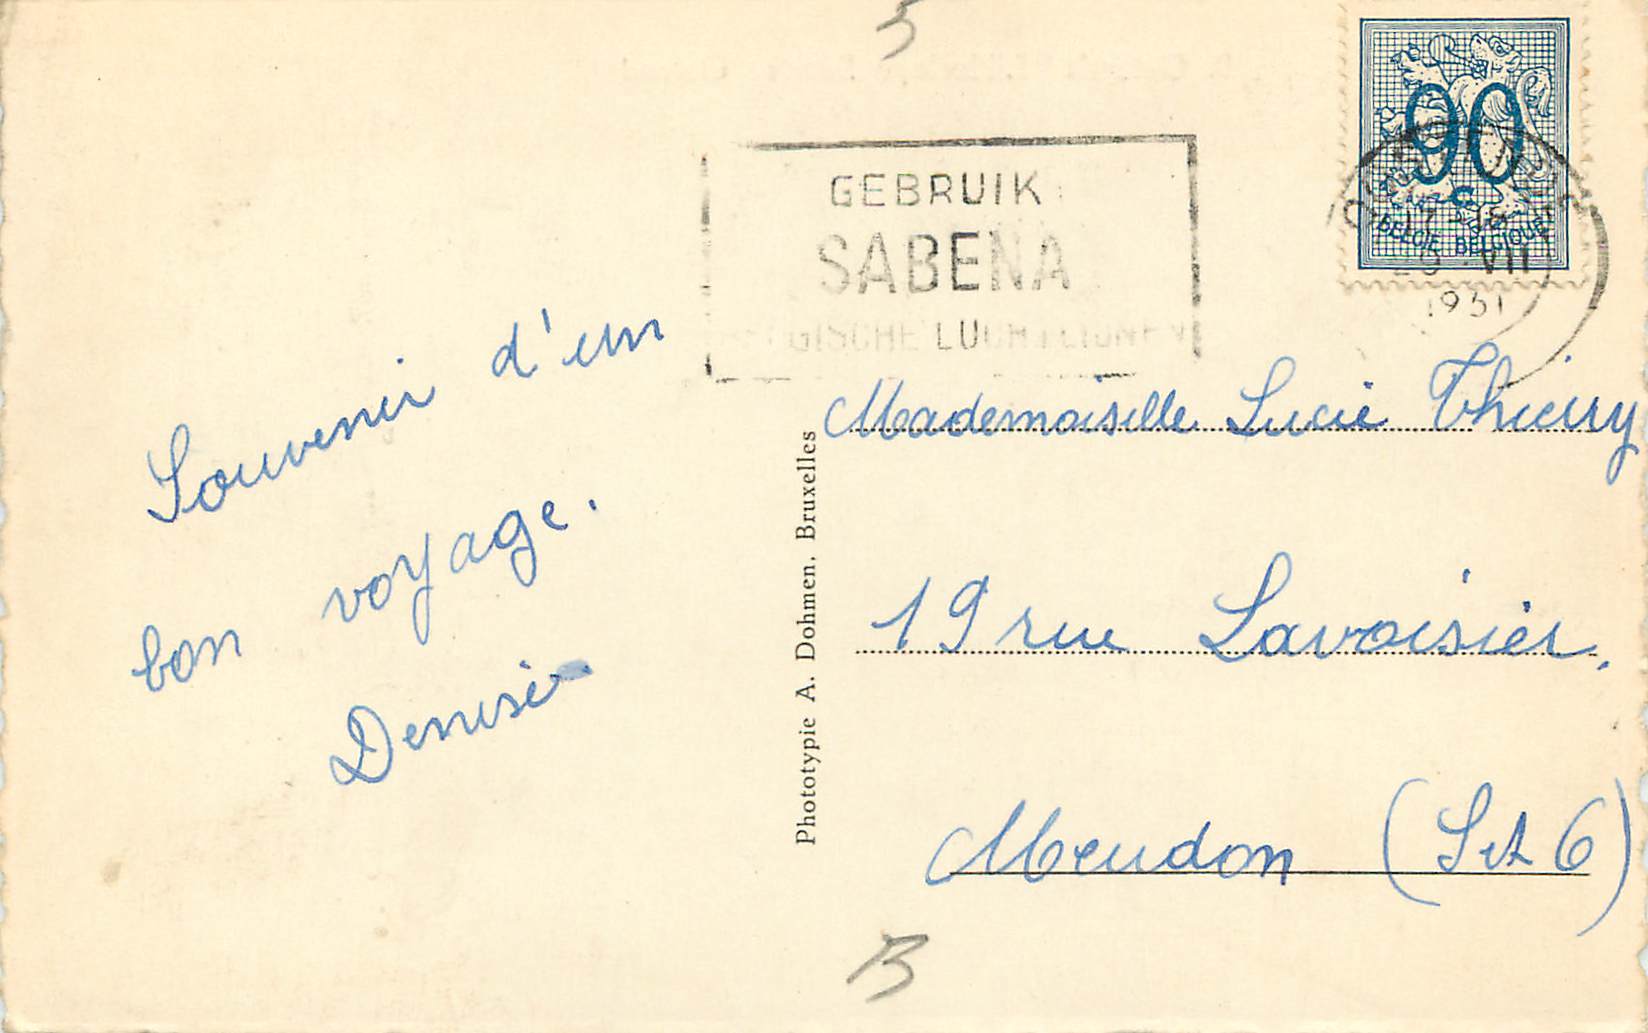 5
90
c
BELGIE BELGIQUE
VII
1951
GEBRUIK
SABENA
BELGISCHE LUCHTLIJNEN
Souvenir d'un
bon voyage.
Denise
Phototypie A. Dohmen, Bruxelles
Mademoiselle Lucie Thierry
19 rue Lavoisier.
Meudon (S et O)